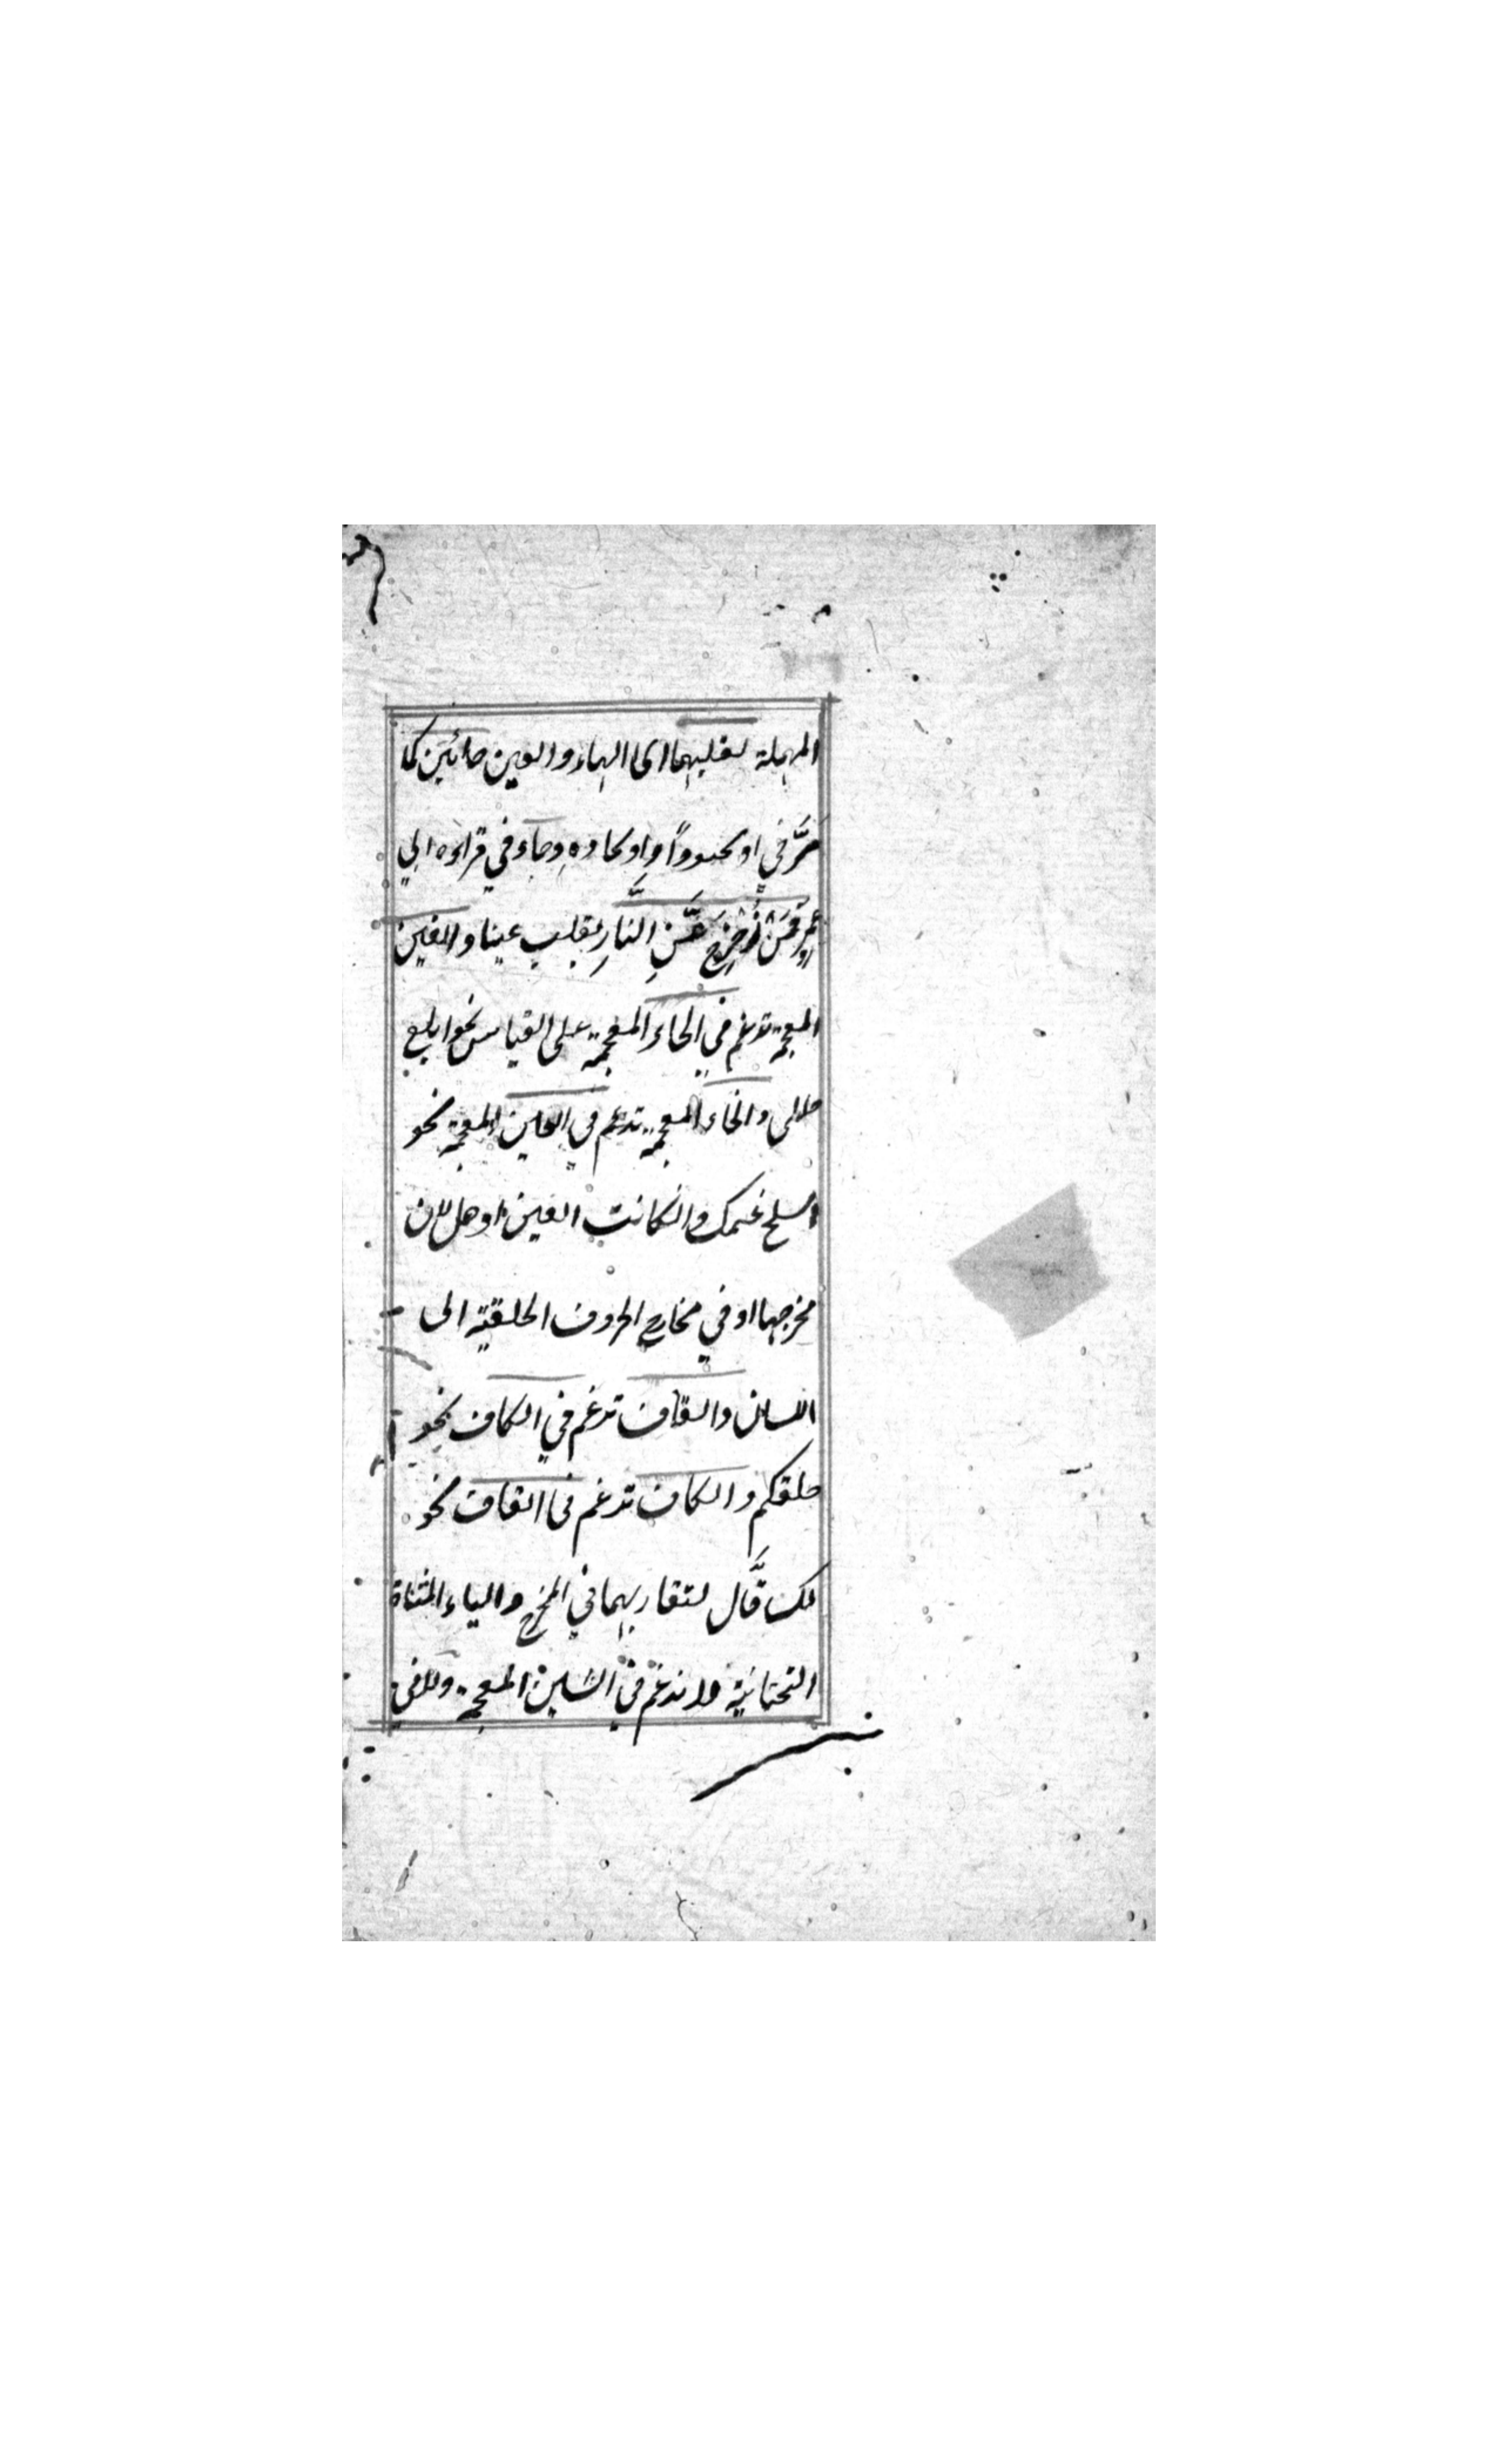 المهملة لقلبهما اى الهاء والعين حائين كما
مرَّ في او كحبودًا واوكاده وجاء في قراءه ابي
عمرو فمَن زُحزِح عَّنِ النَّارِ بقلب عينا والغين
المعجمة تدغم في الخاء المعجمة على القياس نحو ابلغ
حلالى والخاء المعجمة تدغم في الغين المعجمة نحو
اسلخ غنمك وان كانت الغين اوهل لان
مخرجها او في مخارج الحروف الحلقية الى
اللسان والقاف تدغم في الكاف نحو
خلقكم والكاف تدغم فى القاف نحو
لك قَّال لتقاربهما في المخرج والياء المثناة
التحتانية ولا ندغم في الشين المعجمة ولا في